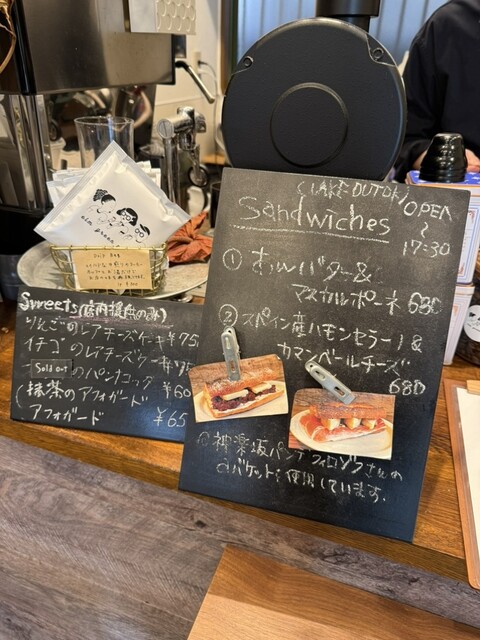 (TAKE OUT OK)
Sandwiches
OPEN
~
17:30
① あんバター&
マスカルポーネ 680
② スペイン産ハモンセラーノ&
カマンベールチーズ
680
神楽坂パンデフィロゾフさんの
バゲットを使用しています。
Sweets(店内提供のみ)
りんごのレアチーズケーキ ¥75
イチゴのレアチーズケーキ ¥75
Sold out
のパンナコッタ ¥60
抹茶のアフォガード
アフォガード ¥65